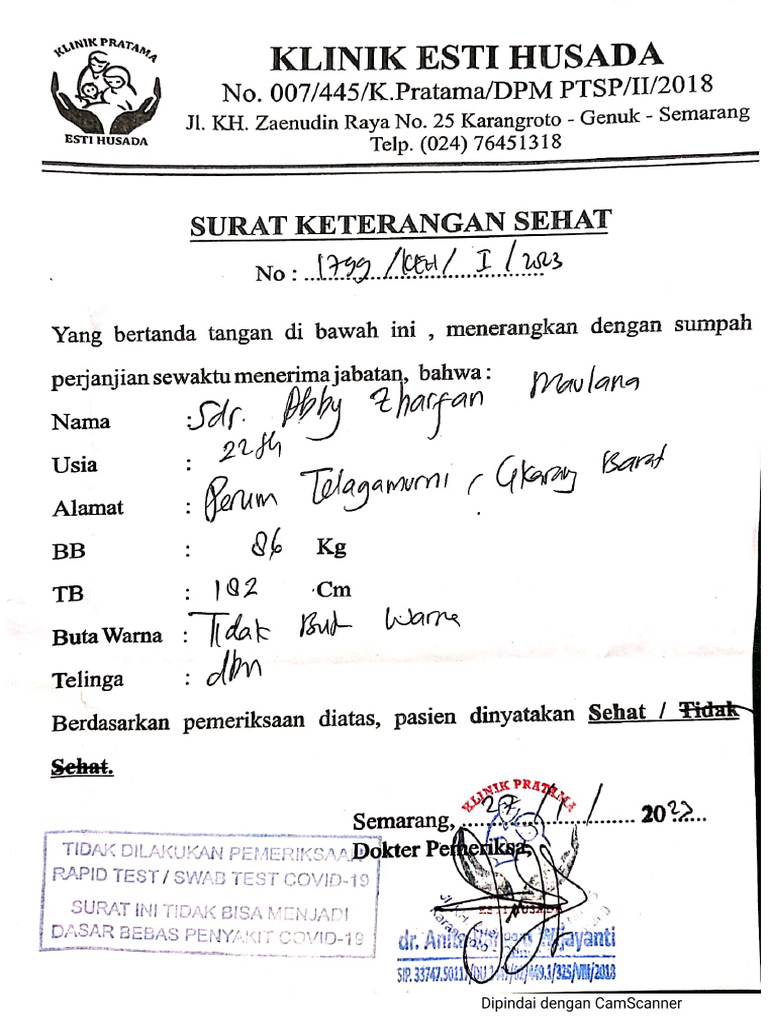 KLINIK PRATAMA
ESTI HUSADA
KLINIK ESTI HUSADA
No. 007/445/K.Pratama/DPM PTSP/II/2018
Jl. KH. Zaenudin Raya No. 25 Karangroto - Genuk - Semarang
Telp. (024) 76451318
SURAT KETERANGAN SEHAT
No : 1799 / KEH / I / 2023
Yang bertanda tangan di bawah ini , menerangkan dengan sumpah
perjanjian sewaktu menerima jabatan, bahwa :
Nama : Sdr. Abby Zharfan Maulana
Usia : 22
Alamat : Perum Telagamurni, Barat
BB : 86 Kg
TB : 182 Cm
Buta Warna : Tidak But Warna
Telinga : dbn
Berdasarkan pemeriksaan diatas, pasien dinyatakan Sehat / Tidak
Sehat.
KLINIK PRATAMA
Semarang, 27 / 1 / 2023
Dokter Pemeriksa,
TIDAK DILAKUKAN PEMERIKSAAN
RAPID TEST / SWAB TEST COVID-19
SURAT INI TIDAK BISA MENJADI
DASAR BEBAS PENYAKIT COVID-19
ESTI HUSADA
dr.
Dipindai dengan CamScanner